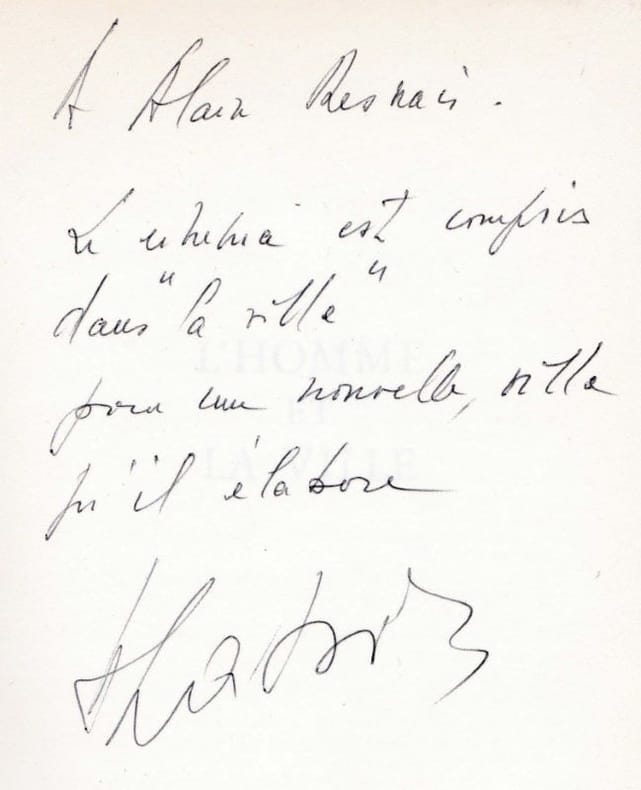 A Alain Resnais.
Le cinéma est compris
dans "la ville"
pour une nouvelle, ville
qu'il élabore
L'HOMME
ET
LA VILLE